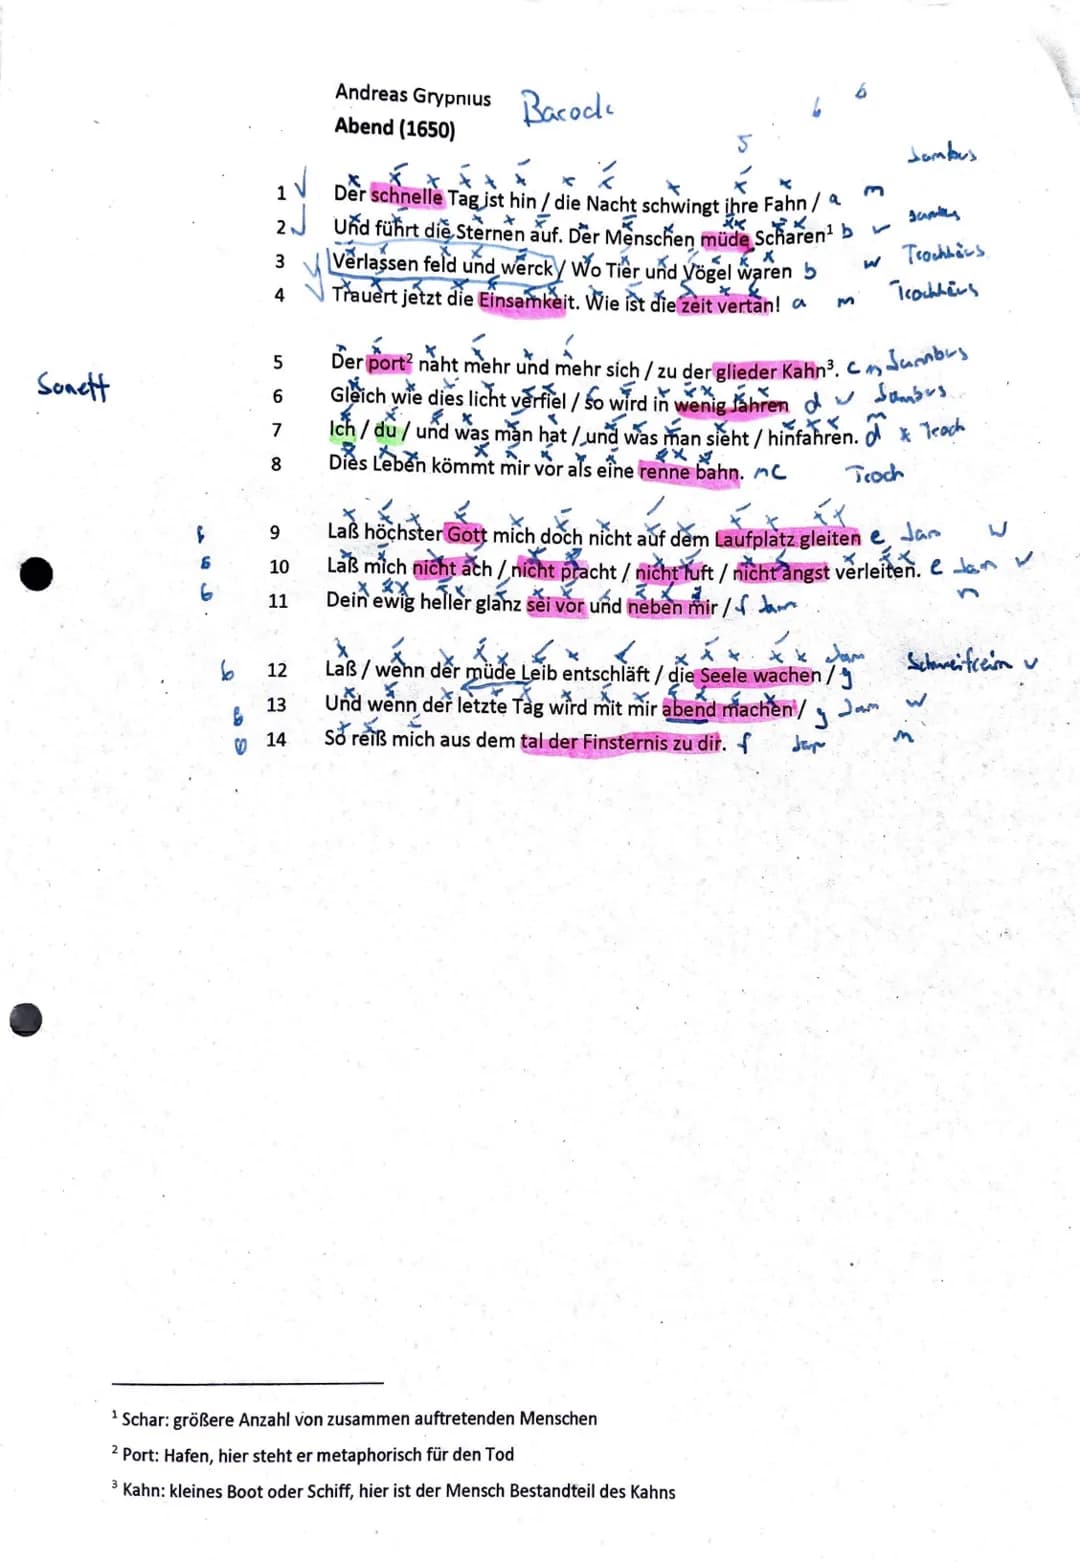 Andreas Grypnius Barock
Abend (1650)
6 6
5
Jambus
1 Der schnelle Tag ist hin / die Nacht schwingt ihre Fahn / a m
2 Und führt die Sternen auf. Der Menschen müde Scharen¹ b w Jambus
3 Verlassen feld und werck / Wo Tier und Vögel waren b w Trochhäus
4 Trauert jetzt die Einsamkeit. Wie ist die zeit vertan! a m Trochhäus
Sonett
5 Der port² naht mehr und mehr sich / zu der glieder Kahn³. c m Jambus
6 Gleich wie dies licht verfiel / so wird in wenig Jahren d w Jambus
7 Ich / du / und was man hat / und was man sieht / hinfahren. d Troch
8 Dies Leben kömmt mir vor als eine renne bahn. m c Troch
9 Laß höchster Gott mich doch nicht auf dem Laufplatz gleiten e Jam w
6 10 Laß mich nicht ach / nicht pracht / nicht luft / nicht angst verleiten. e Jam w
6 11 Dein ewig heller glanz sei vor und neben mir / f Jam m
6 12 Laß / wenn der müde Leib entschläft / die Seele wachen / g Jam Schweifreim w
6 13 Und wenn der letzte Tag wird mit mir abend machen / g Jam w
6 14 So reiß mich aus dem tal der Finsternis zu dir. f Jam m
¹ Schar: größere Anzahl von zusammen auftretenden Menschen
² Port: Hafen, hier steht er metaphorisch für den Tod
³ Kahn: kleines Boot oder Schiff, hier ist der Mensch Bestandteil des Kahns